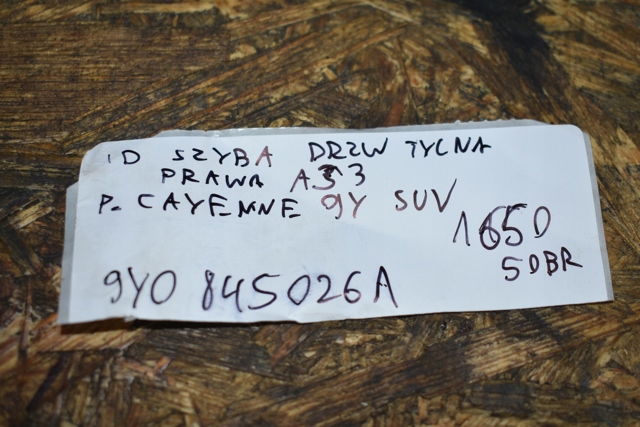 ID SZYBA DRZW TYLNA
PRAWA AS3
P. CAYENNE 9Y SUV
1650
5DBR
9Y0 845026A